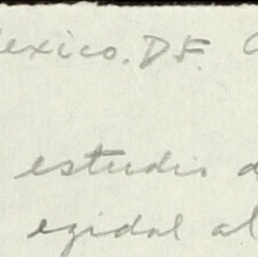 exico. D.F.
estudio
egidal al